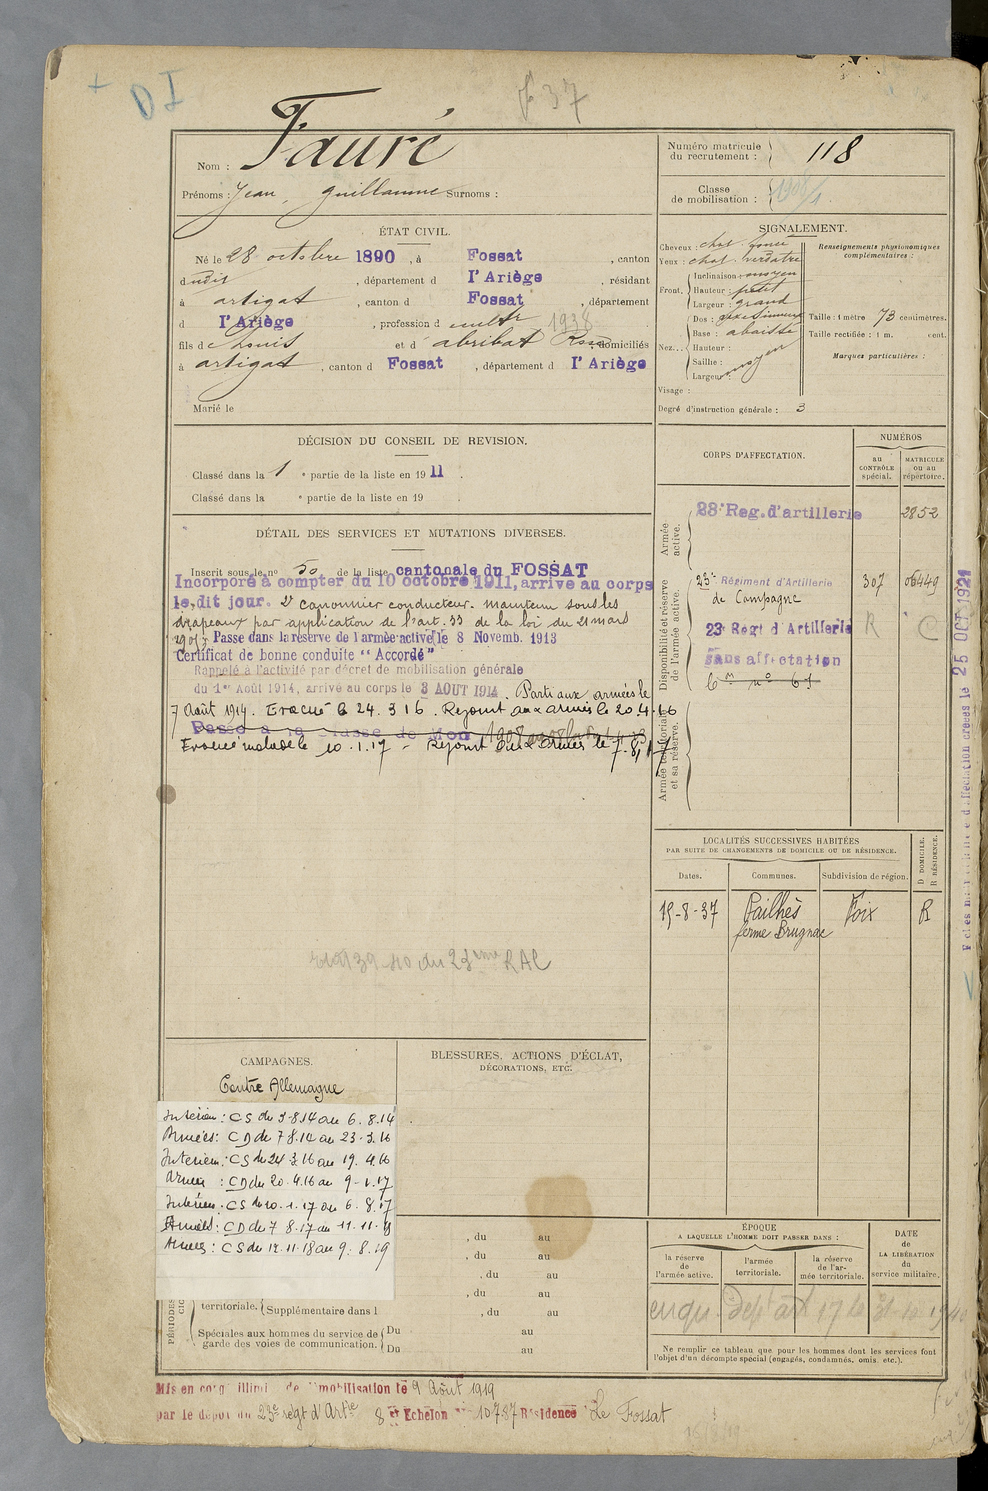 DI
37
Nom : Fauré
Prénoms : Jean, Guillaume Surnoms :
Numéro matricule du recrutement : 118
Classe de mobilisation : 1908/1.
ÉTAT CIVIL.
Né le 28 octobre 1890, à Fossat, canton
dudit, département d l'Ariège, résidant
à artigat, canton d Fossat, département
d l'Ariège, profession d cultr 1938
fils de Louis et d' abribat Rose domiciliés
à artigat, canton d Fossat, département d l'Ariège
Marié le
SIGNALEMENT.
Cheveux : chat. foncé
Yeux : chat. verdatre
Front. Inclinaison : moyen
Hauteur : petit
Largeur : grand
Nez... Dos :
Base : abaissé
Hauteur :
Saillie : moyen
Largeur :
Visage :
Degré d'instruction générale : 3
Renseignements physionomiques complémentaires :
Taille : 1 mètre 73 centimètres.
Taille rectifiée : 1 m. cent.
Marques particulières :
DÉCISION DU CONSEIL DE REVISION.
Classé dans la 1 e partie de la liste en 1911.
Classé dans la e partie de la liste en 19
CORPS D'AFFECTATION.
NUMÉROS
au CONTRÔLE spécial.
MATRICULE ou au répertoire.
Armée active.
28e Reg. d'artillerie 2852
Disponibilité et réserve de l'armée active.
23e Régiment d'Artillerie 307 06449
de Campagne
23e Régt d'Artillerie R C
sans affectation
Cm no 63
Armée territoriale et sa réserve.
DÉTAIL DES SERVICES ET MUTATIONS DIVERSES.
Inscrit sous le no 50 de la liste cantonale du FOSSAT
Incorporé à compter du 10 octobre 1911, arrivé au corps
le dit jour. 2e canonnier conducteur. maintenu sous les
drapeaux par application de l'art. 33 de la loi du 21 mars
1905 Passé dans la réserve de l'armée active le 8 Novemb. 1913
Certificat de bonne conduite "Accordé"
Rappelé à l'activité par décret de mobilisation générale
du 1er Août 1914, arrivé au corps le 3 AOUT 1914. Parti aux armées le
7 Août 1914. Evacué le 24.3.16. Rejoint aux armées le 20.4.16
Passé à la classe de Mob 1908
Evacué malade le 10.1.17 - Rejoint aux armées le 7.8.17
39-40 du 23ème RAC
LOCALITÉS SUCCESSIVES HABITÉES
PAR SUITE DE CHANGEMENTS DE DOMICILE OU DE RÉSIDENCE.
Dates.
Communes.
Subdivision de région.
D DOMICILE.
R RÉSIDENCE.
15-8-37 Pailhès Foix R
ferme Brugnac
25 OCT 1921
CAMPAGNES.
Contre Allemagne
Intérieur : CS du 3-8.14 au 6.8.14
Armées : CD du 7 8.14 au 23.3.16
Intérieur : CS du 24 3.16 au 19.4.16
Armées : CD du 20.4.16 au 9-1.17
Intérieur : CS du 10.1.17 au 6.8.17
Armées : CD du 7 8.17 au 11.11.18
Armées : CS du 12.11.18 au 9.8.19
BLESSURES, ACTIONS D'ÉCLAT, DÉCORATIONS, ETC.
, du au
, du au
, du au
, du au
territoriale. Supplémentaire dans l , du au
Spéciales aux hommes du service de garde des voies de communication. Du au
Du au
PÉRIODES
ÉPOQUE
A LAQUELLE L'HOMME DOIT PASSER DANS :
la réserve de l'armée active.
l'armée territoriale.
la réserve de l'armée territoriale.
DATE de LA LIBÉRATION du service militaire.
Dépt art 17
Ne remplir ce tableau que pour les hommes dont les services font l'objet d'un décompte spécial (engagés, condamnés, omis, etc.).
Mis en congé illimité de démobilisation le 9 Août 1919
par le dépôt du 23e régt d'Artie 8 e Echelon no 10787 Résidence Le Fossat